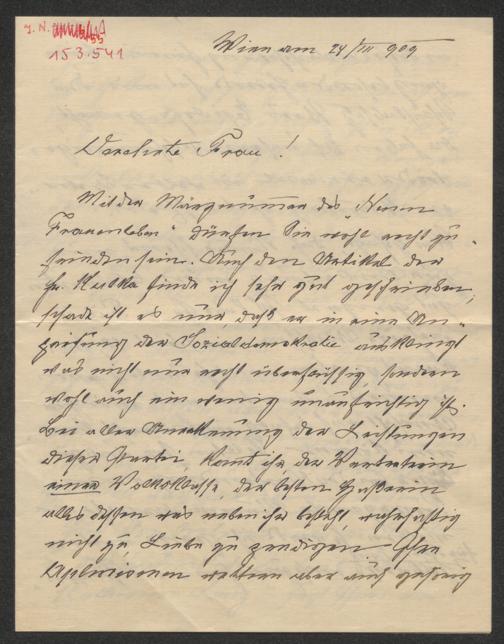 J. N.
153.541
Wien am 24/III 909
Verehrte Frau!
Mit der Märznummer des "Neuen
Frauenleben" dürfen Sie wohl recht zu-
frieden sein. Auch den Artikel der
Fr. finde ich sehr gut geschrieben,
schade ist es nur, daß er in eine
der Sozialdemokratie ausklingt
was nicht nur recht überflüssig, sondern
wohl auch ein wenig unaufrichtig ist.
Bei aller Anerkennung der Leistungen
dieser Partei, kommt ihr, der Vertreterin
einer Volksklasse, der besten Hasserin
alles dessen was neben ihr besteht, wahrhaftig
nicht zu, Liebe zu predigen. Ihre
aber auch